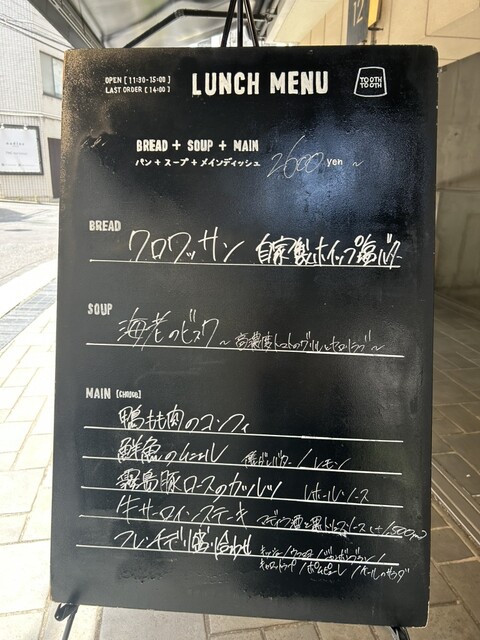 OPEN [11:30-15:00]
LAST ORDER [14:00]
LUNCH MENU
TOOTH
TOOTH
12
BREAD + SOUP + MAIN
パン+スープ+メインディッシュ
2600 yen ~
BREAD
クロワッサン 自家製ホイップ塩バター
SOUP
海老のビスク ~高濃度トマトのグリル~
MAIN
鴨もも肉のコンフィ
鮮魚のムニエル 焦がしバター/レモン
霧島豚ロースのカツレツ ソース
牛サーロインステーキ マデラ酒と黒トリュフソース +1,500
フレンチデリ盛り合わせ